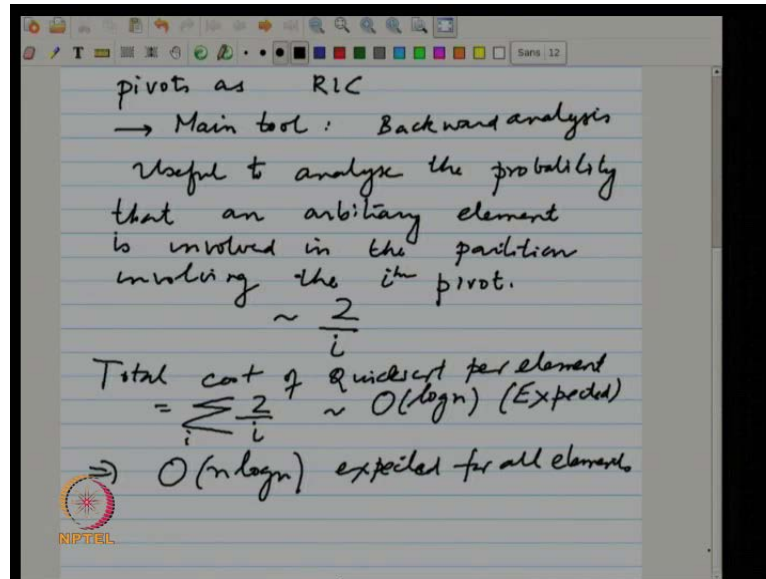 Sans 12
pivots as RIC
→ Main tool : Backward analysis
Useful to analyse the probability
that an arbitiary element
is involved in the partition
involving the ith pivot.
~ 2/i
Total cost of Quicksort per element
= ∑_i 2/i ~ O(logn) (Expected)
⇒ O(nlogn) expected for all elements
NPTEL